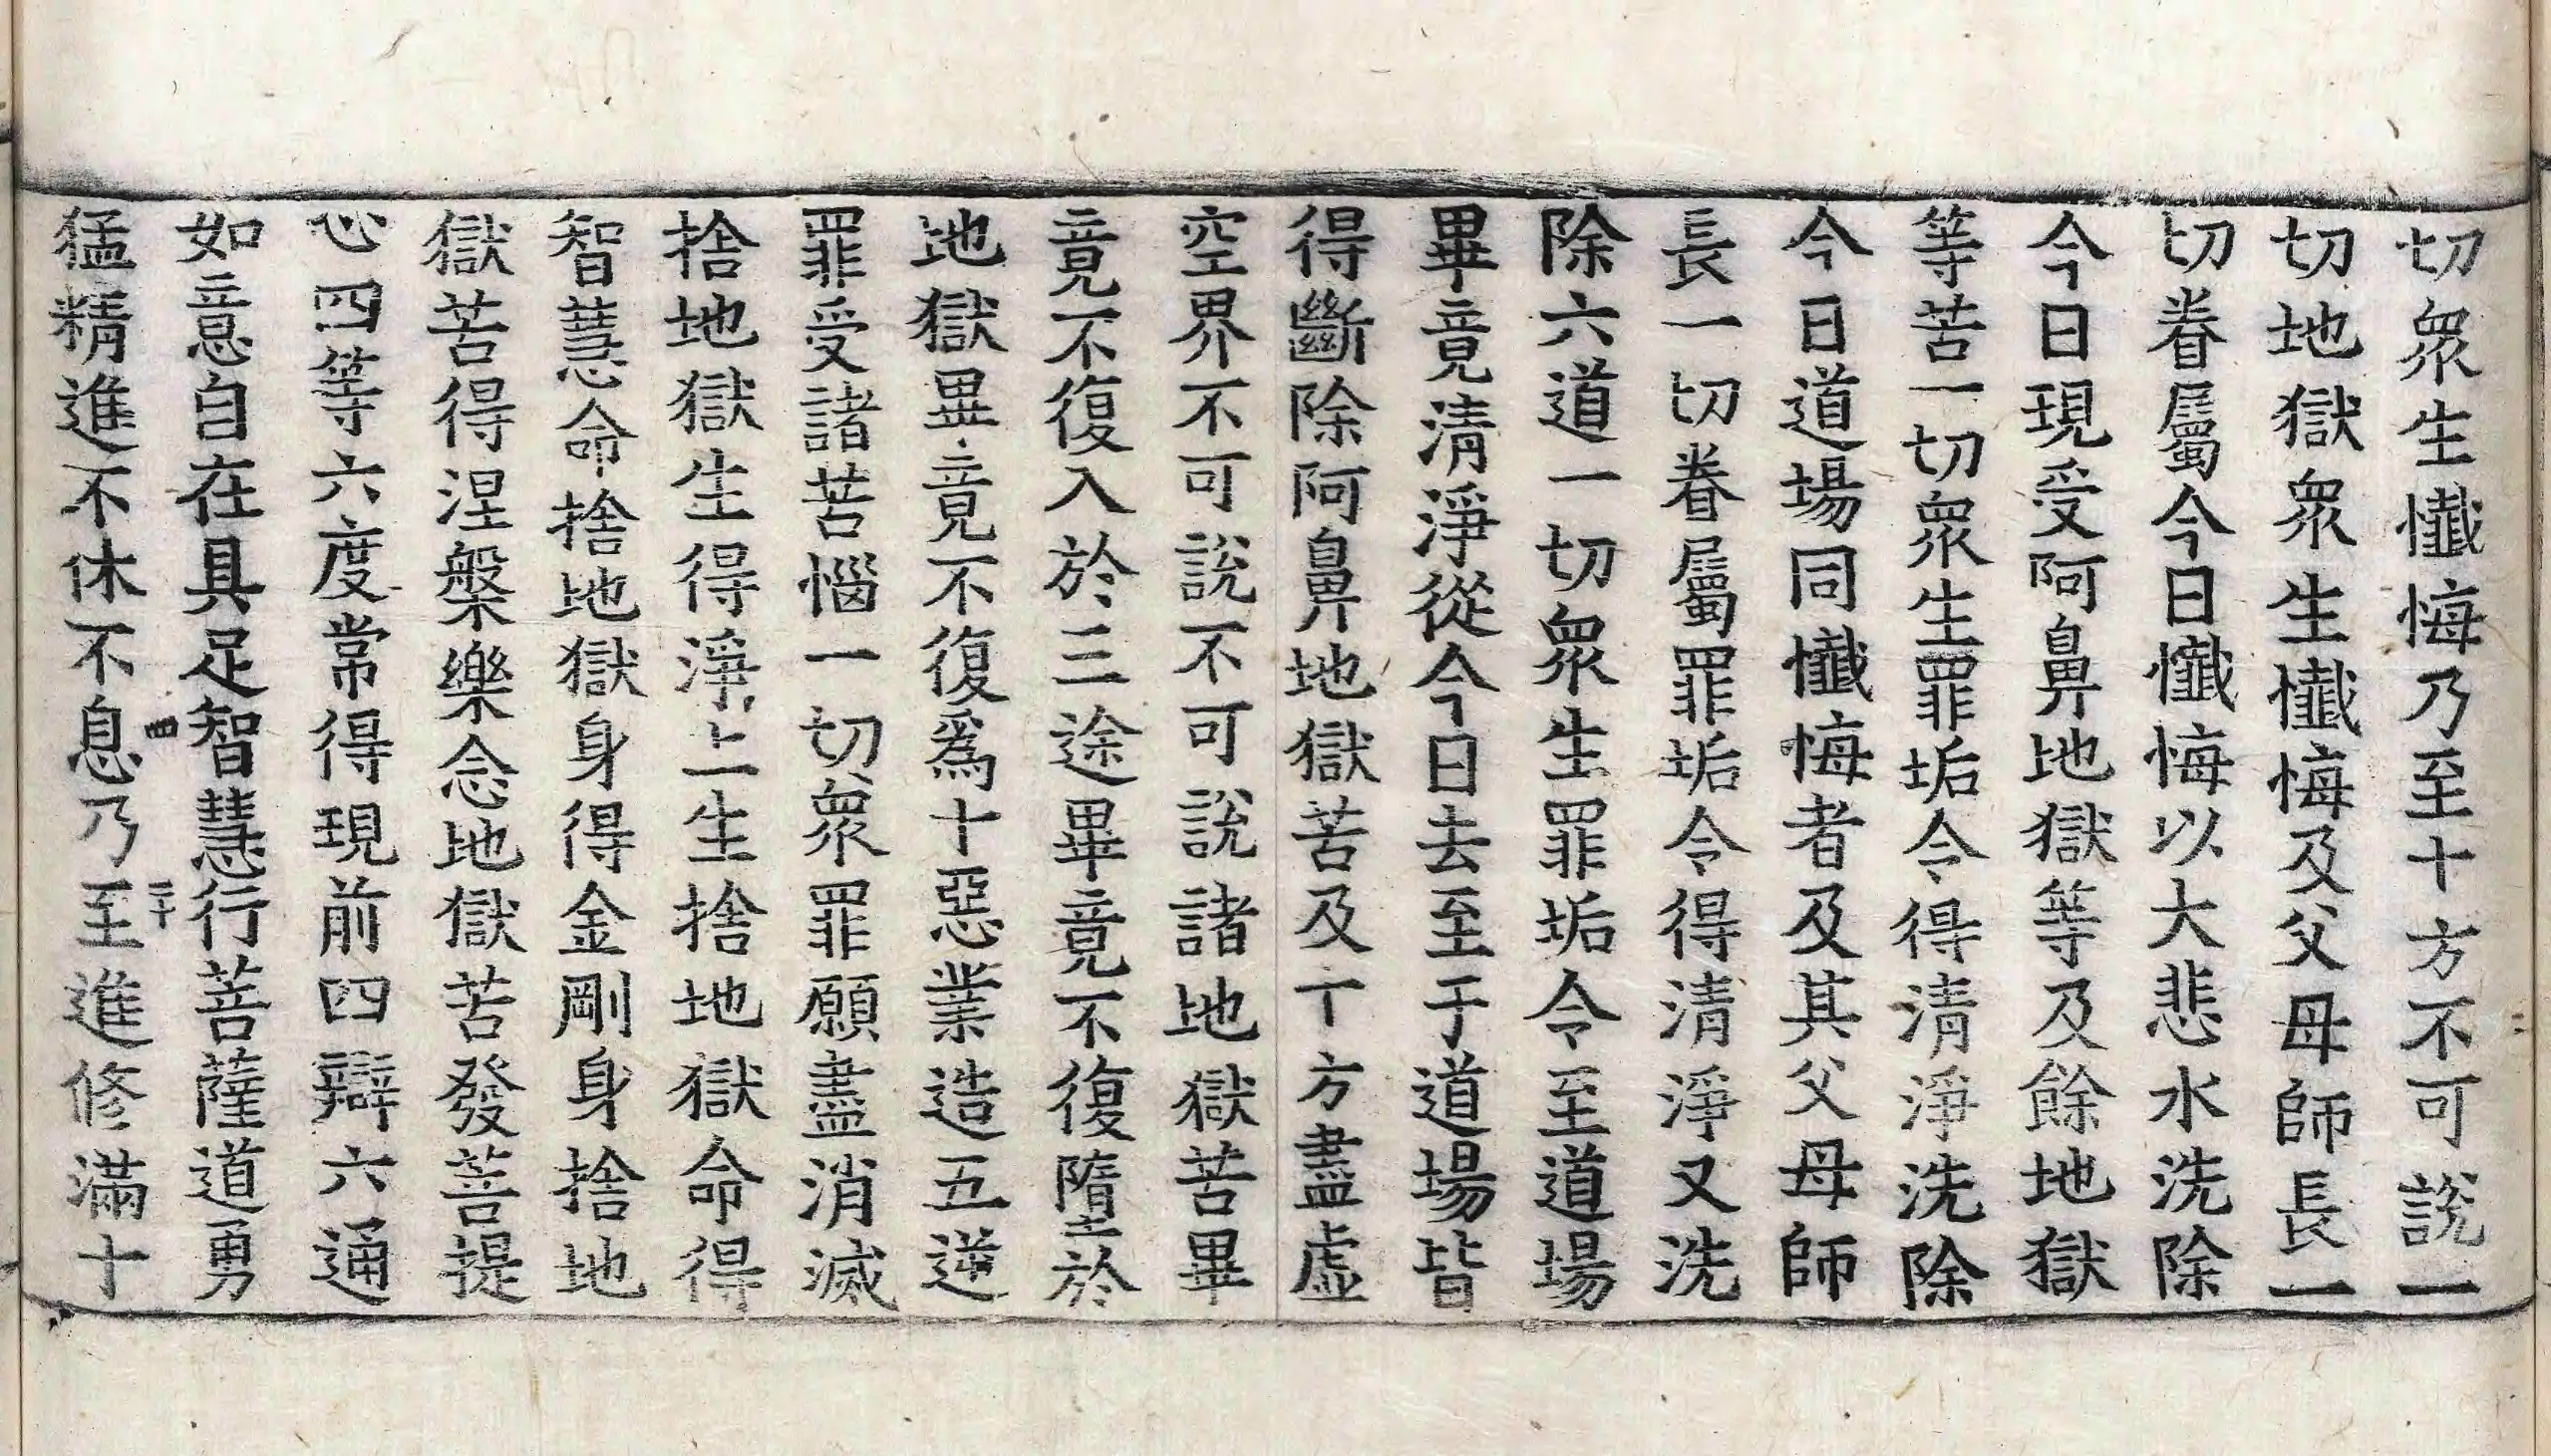 切衆生懺悔乃至十方不可說一
切地獄衆生懺悔及父母師長一
切眷屬今日懺悔以大悲水洗除
今日現受阿鼻地獄等及餘地獄
等苦一切衆生罪垢令得清淨洗除
今日道場同懺悔者及其父母師
長一切眷屬罪垢令得清淨又洗
除六道一切衆生罪垢令至道場
畢竟清淨從今日去至于道場皆
得斷除阿鼻地獄苦及十方盡虛
空界不可說不可說諸地獄苦畢
竟不復入於三途畢竟不復墮於
地獄畢竟不復爲十惡業造五逆
罪受諸苦惱一切衆罪願盡消滅
捨地獄生得淨土生捨地獄命得
智慧命捨地獄身得金剛身捨地
獄苦得涅槃樂念地獄苦發菩提
心四等六度常得現前四辯六通
如意自在具足智慧行菩薩道勇
四
二十
猛精進不休不息乃至進修滿十